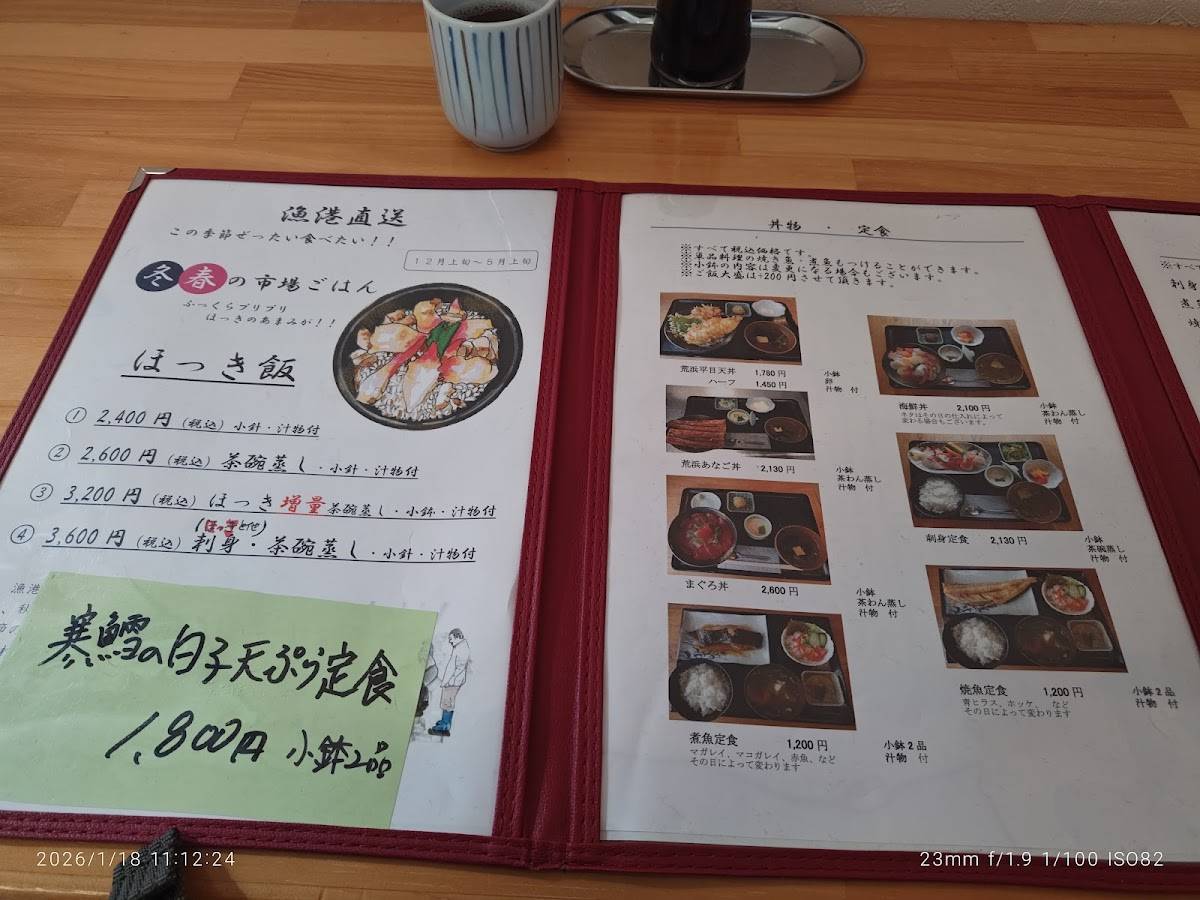 漁港直送
この季節ぜったい食べたい！！
12月上旬～5月上旬
冬春の市場ごはん
ふっくらプリプリ
ほっきのあまみが！！
ほっき飯
① 2,400円（税込）小針・汁物付
② 2,600円（税込）茶碗蒸し・小針・汁物付
③ 3,200円（税込）ほっき増量茶碗蒸し・小鉢・汁物付
④ 3,600円（税込）刺身・茶碗蒸し・小針・汁物付
漁港
寒鱈の白子天ぷら定食
1,800円 小鉢2品
丼物 ・ 定食
※すべて税込価格です。
※単品料理の焼き魚・煮魚もつけることができます。
※小鉢の内容は変更になる場合もございます。
※ご飯大盛は+200円させて頂きます。
荒浜平目天丼 1,780円
ハーフ 1,450円
小鉢
卵
汁物 付
荒浜あなご丼 2,130円
小鉢
茶わん蒸し
汁物 付
まぐろ丼 2,600円
小鉢
茶わん蒸し
汁物 付
煮魚定食 1,200円
マガレイ、マコガレイ、赤魚、など
その日によって変わります
小鉢2品
汁物 付
海鮮丼 2,100円
ネタはその日の仕入れによって
変わる場合もございます。
小鉢
茶わん蒸し
汁物 付
刺身定食 2,130円
小鉢
茶碗蒸し
汁物 付
焼魚定食 1,200円
青ヒラス、ホッケ、など
その日によって変わります
小鉢2品
汁物 付
※すべ
刺身
煮
2026/1/18 11:12:24
23mm f/1.9 1/100 ISO82